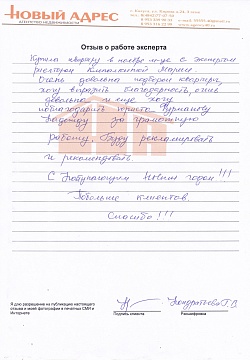 НОВЫЙ АДРЕС
АГЕНТСТВО НЕДВИЖИМОСТИ
Отзыв о работе эксперта
Купила квартиру в ноябре м-це с экспертом
Очень довольна подбором квартиры,
хочу выразить благодарность, очень
довольна и еще хочу
поблагодарить юриста
Надежду за грамотную
работу. Буду рекламировать
и рекомендовать.
С Наступающим Новым годом!!!
Побольше клиентов.
Спасибо!!!
Я даю разрешение на публикацию настоящего
отзыва и моей фотографии в печатных СМИ и
Интернете
Кондратьева Г.В
Подпись клиента
Расшифровка